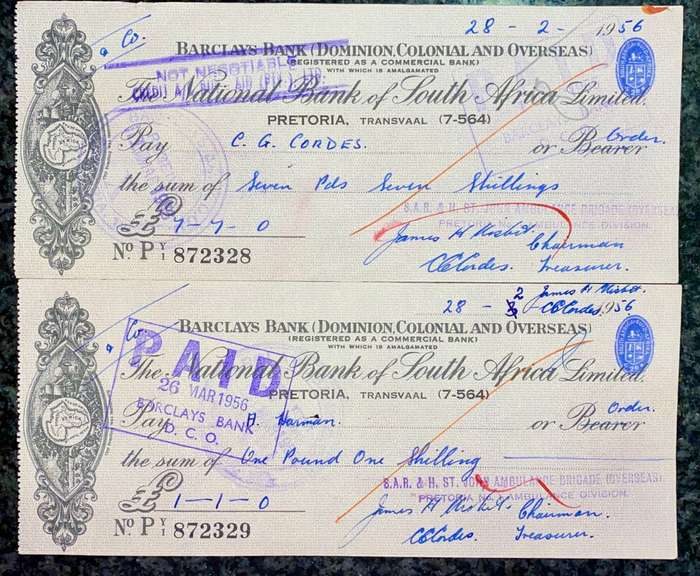 28 - 2 - 1956
& Co.
BARCLAYS BANK (DOMINION, COLONIAL AND OVERSEAS)
(REGISTERED AS A COMMERCIAL BANK)
WITH WHICH IS AMALGAMATED
NOT NEGOTIABLE
The National Bank of South Africa Limited.
PRETORIA, TRANSVAAL (7-564)
Pay C. G. CORDES. or Bearer Order.
the sum of Seven Pds Seven Shillings
S.A.R. & H. ST. JOHN AMBULANCE BRIGADE (OVERSEAS)
£ 7-7-0
James H Nisbet. Chairman
No. P Y/1 872328
CGCordes. Treasurer.
28 - 2 1956
James H Nisbet.
CGCordes
& Co.
BARCLAYS BANK (DOMINION, COLONIAL AND OVERSEAS)
(REGISTERED AS A COMMERCIAL BANK)
WITH WHICH IS AMALGAMATED
PAID
26 MAR 1956
BARCLAYS BANK
D. C. O.
The National Bank of South Africa Limited.
PRETORIA, TRANSVAAL (7-564)
Pay Harman. or Bearer Order.
the sum of One Pound One Shilling
S.A.R. & H. ST. JOHN AMBULANCE BRIGADE (OVERSEAS)
£ 1-1-0
James H Nisbet. Chairman.
No. P Y/1 872329
CGCordes. Treasurer.